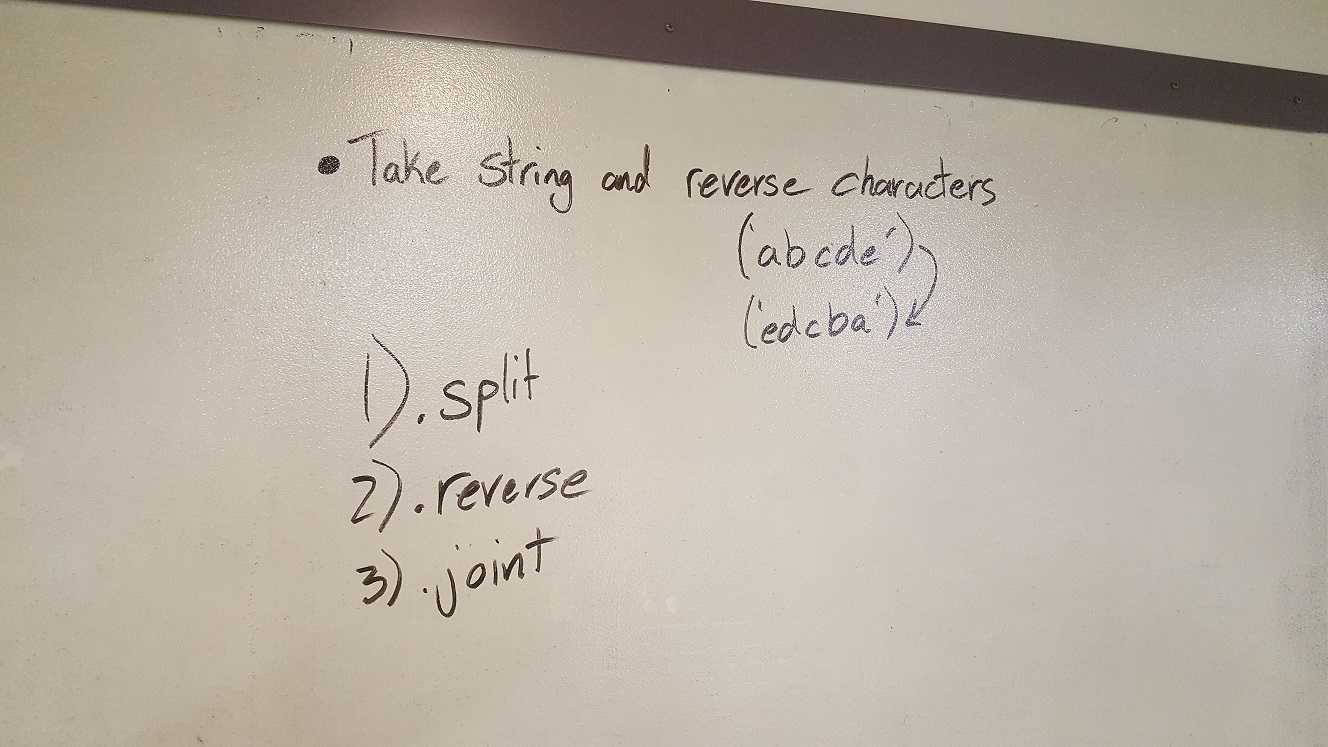 • Take string and reverse characters
('abcde')
('edcba')
1) .split
2) .reverse
3) .joint